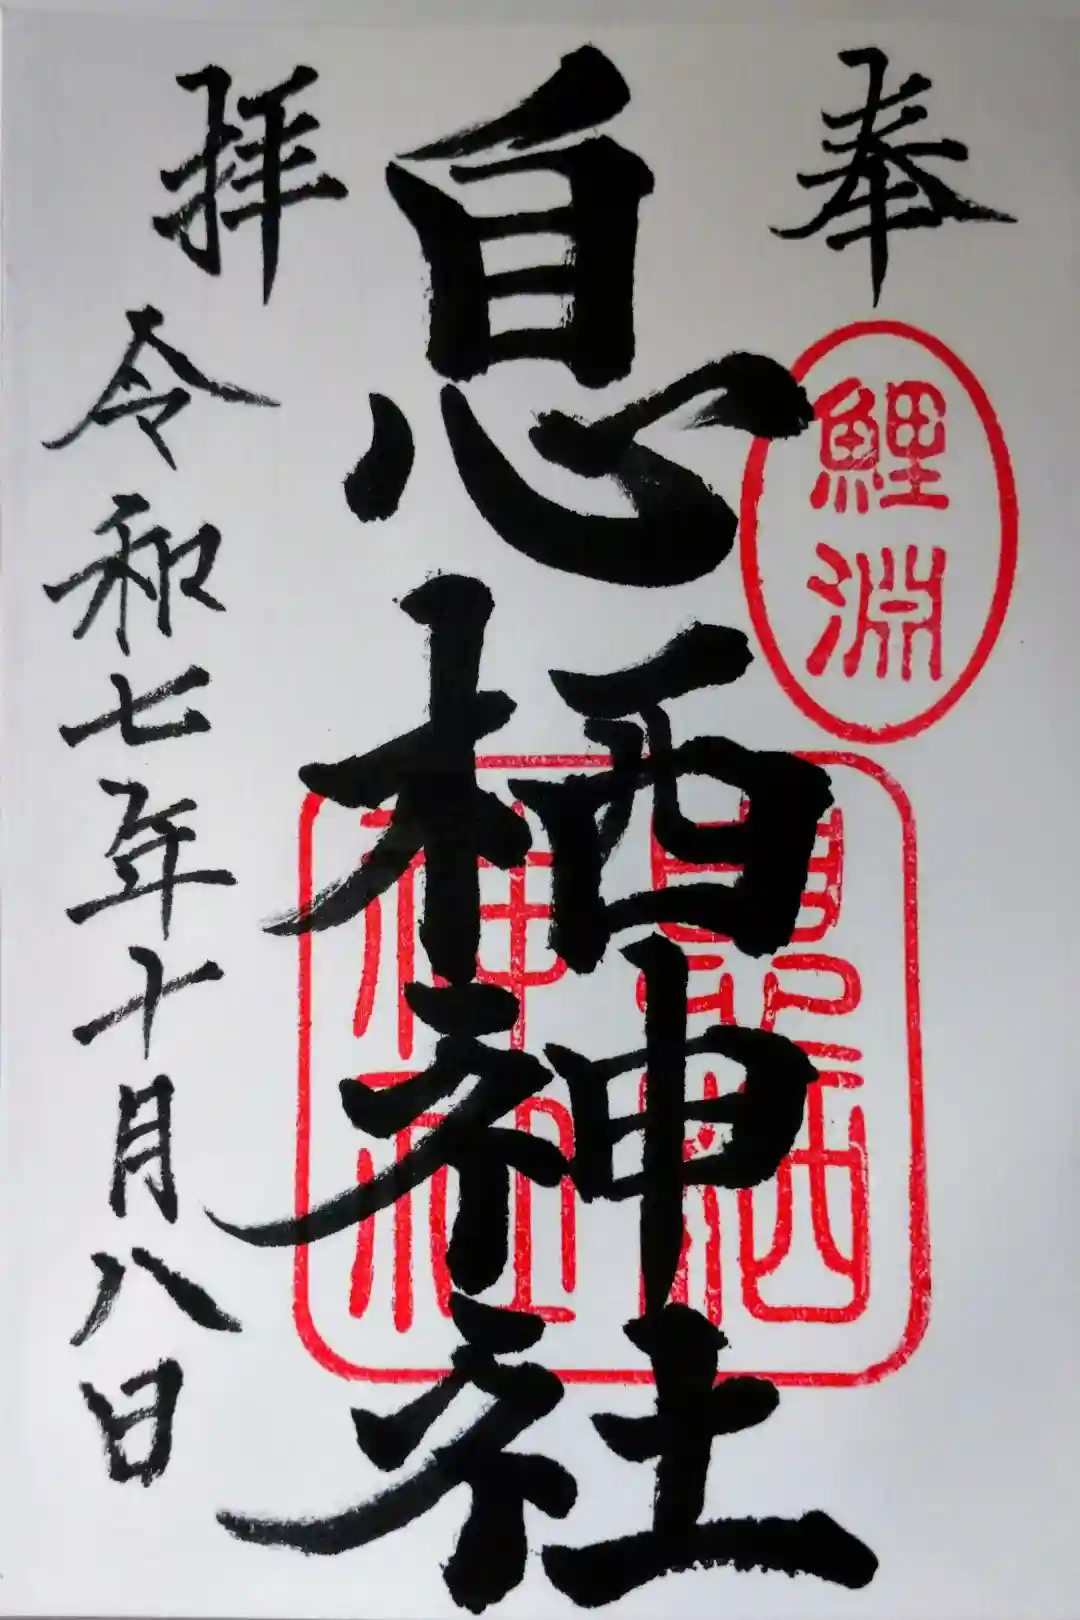 奉
鯉淵
息栖神社
拝
令和七年十月八日
息栖神社